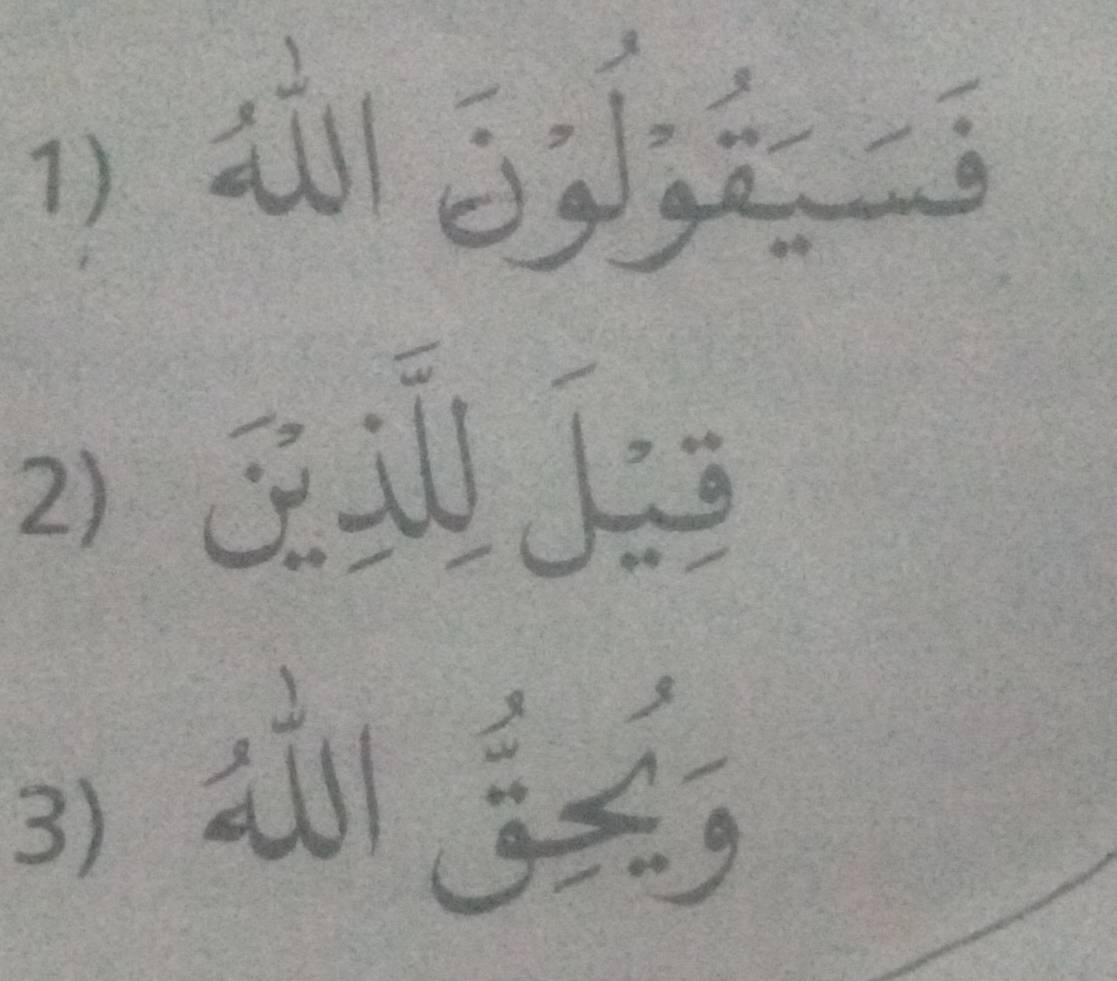 1) فَسَيَقُوْلُوْنَ اللّٰهُ
2) قِيْلَ لِلَّذِيْنَ
3) وَيُحِقُّ اللّٰهُ